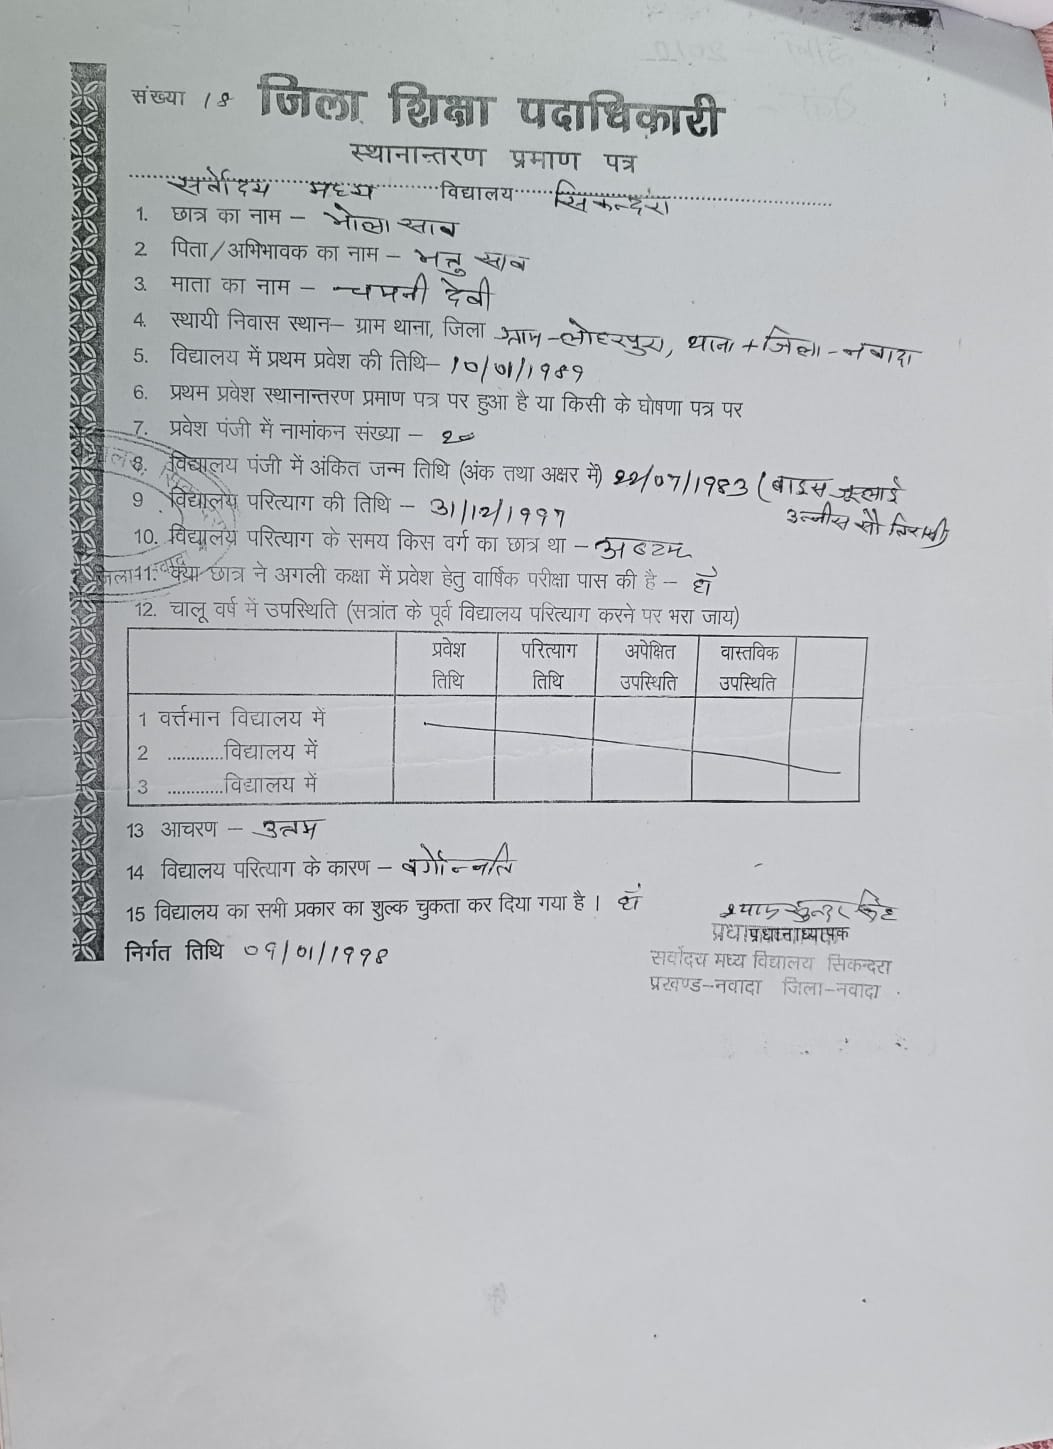 संख्या 18 जिला शिक्षा पदाधिकारी
स्थानान्तरण प्रमाण पत्र
सर्वोदय मध्य विद्यालय सिकन्दरा
1. छात्र का नाम – भोला साव
2 पिता/अभिभावक का नाम – भत्तु साव
3. माता का नाम – चमनी देवी
4. स्थायी निवास स्थान– ग्राम थाना, जिला ग्राम-लोहरपुरा, थाना + जिला - नवादा
5. विद्यालय में प्रथम प्रवेश की तिथि– 10/01/1989
6. प्रथम प्रवेश स्थानान्तरण प्रमाण पत्र पर हुआ है या किसी के घोषणा पत्र पर
7. प्रवेश पंजी में नामांकन संख्या –
8. विद्यालय पंजी में अंकित जन्म तिथि (अंक तथा अक्षर में) 22/07/1983 (बाइस जूलाई
उन्नीस सौ तिरासी)
9 विद्यालय परित्याग की तिथि – 31/12/1997
10. विद्यालय परित्याग के समय किस वर्ग का छात्र था – अष्टम
11. क्या छात्र ने अगली कक्षा में प्रवेश हेतु वार्षिक परीक्षा पास की है – हाँ
12. चालू वर्ष में उपस्थिति (सत्रांत के पूर्व विद्यालय परित्याग करने पर भरा जाय)
प्रवेश परित्याग अपेक्षित वास्तविक
तिथि तिथि उपस्थिति उपस्थिति
1 वर्त्तमान विद्यालय में
2 ............विद्यालय में
3 ............विद्यालय में
13 आचरण – उत्तम
14 विद्यालय परित्याग के कारण – वर्गोन्नति
15 विद्यालय का सभी प्रकार का शुल्क चुकता कर दिया गया है । हाँ
श्याम सुन्दर सिंह
प्रधानाध्यापक
निर्गत तिथि 09/01/1998
सर्वोदय मध्य विद्यालय सिकन्दरा
प्रखण्ड-नवादा जिला-नवादा